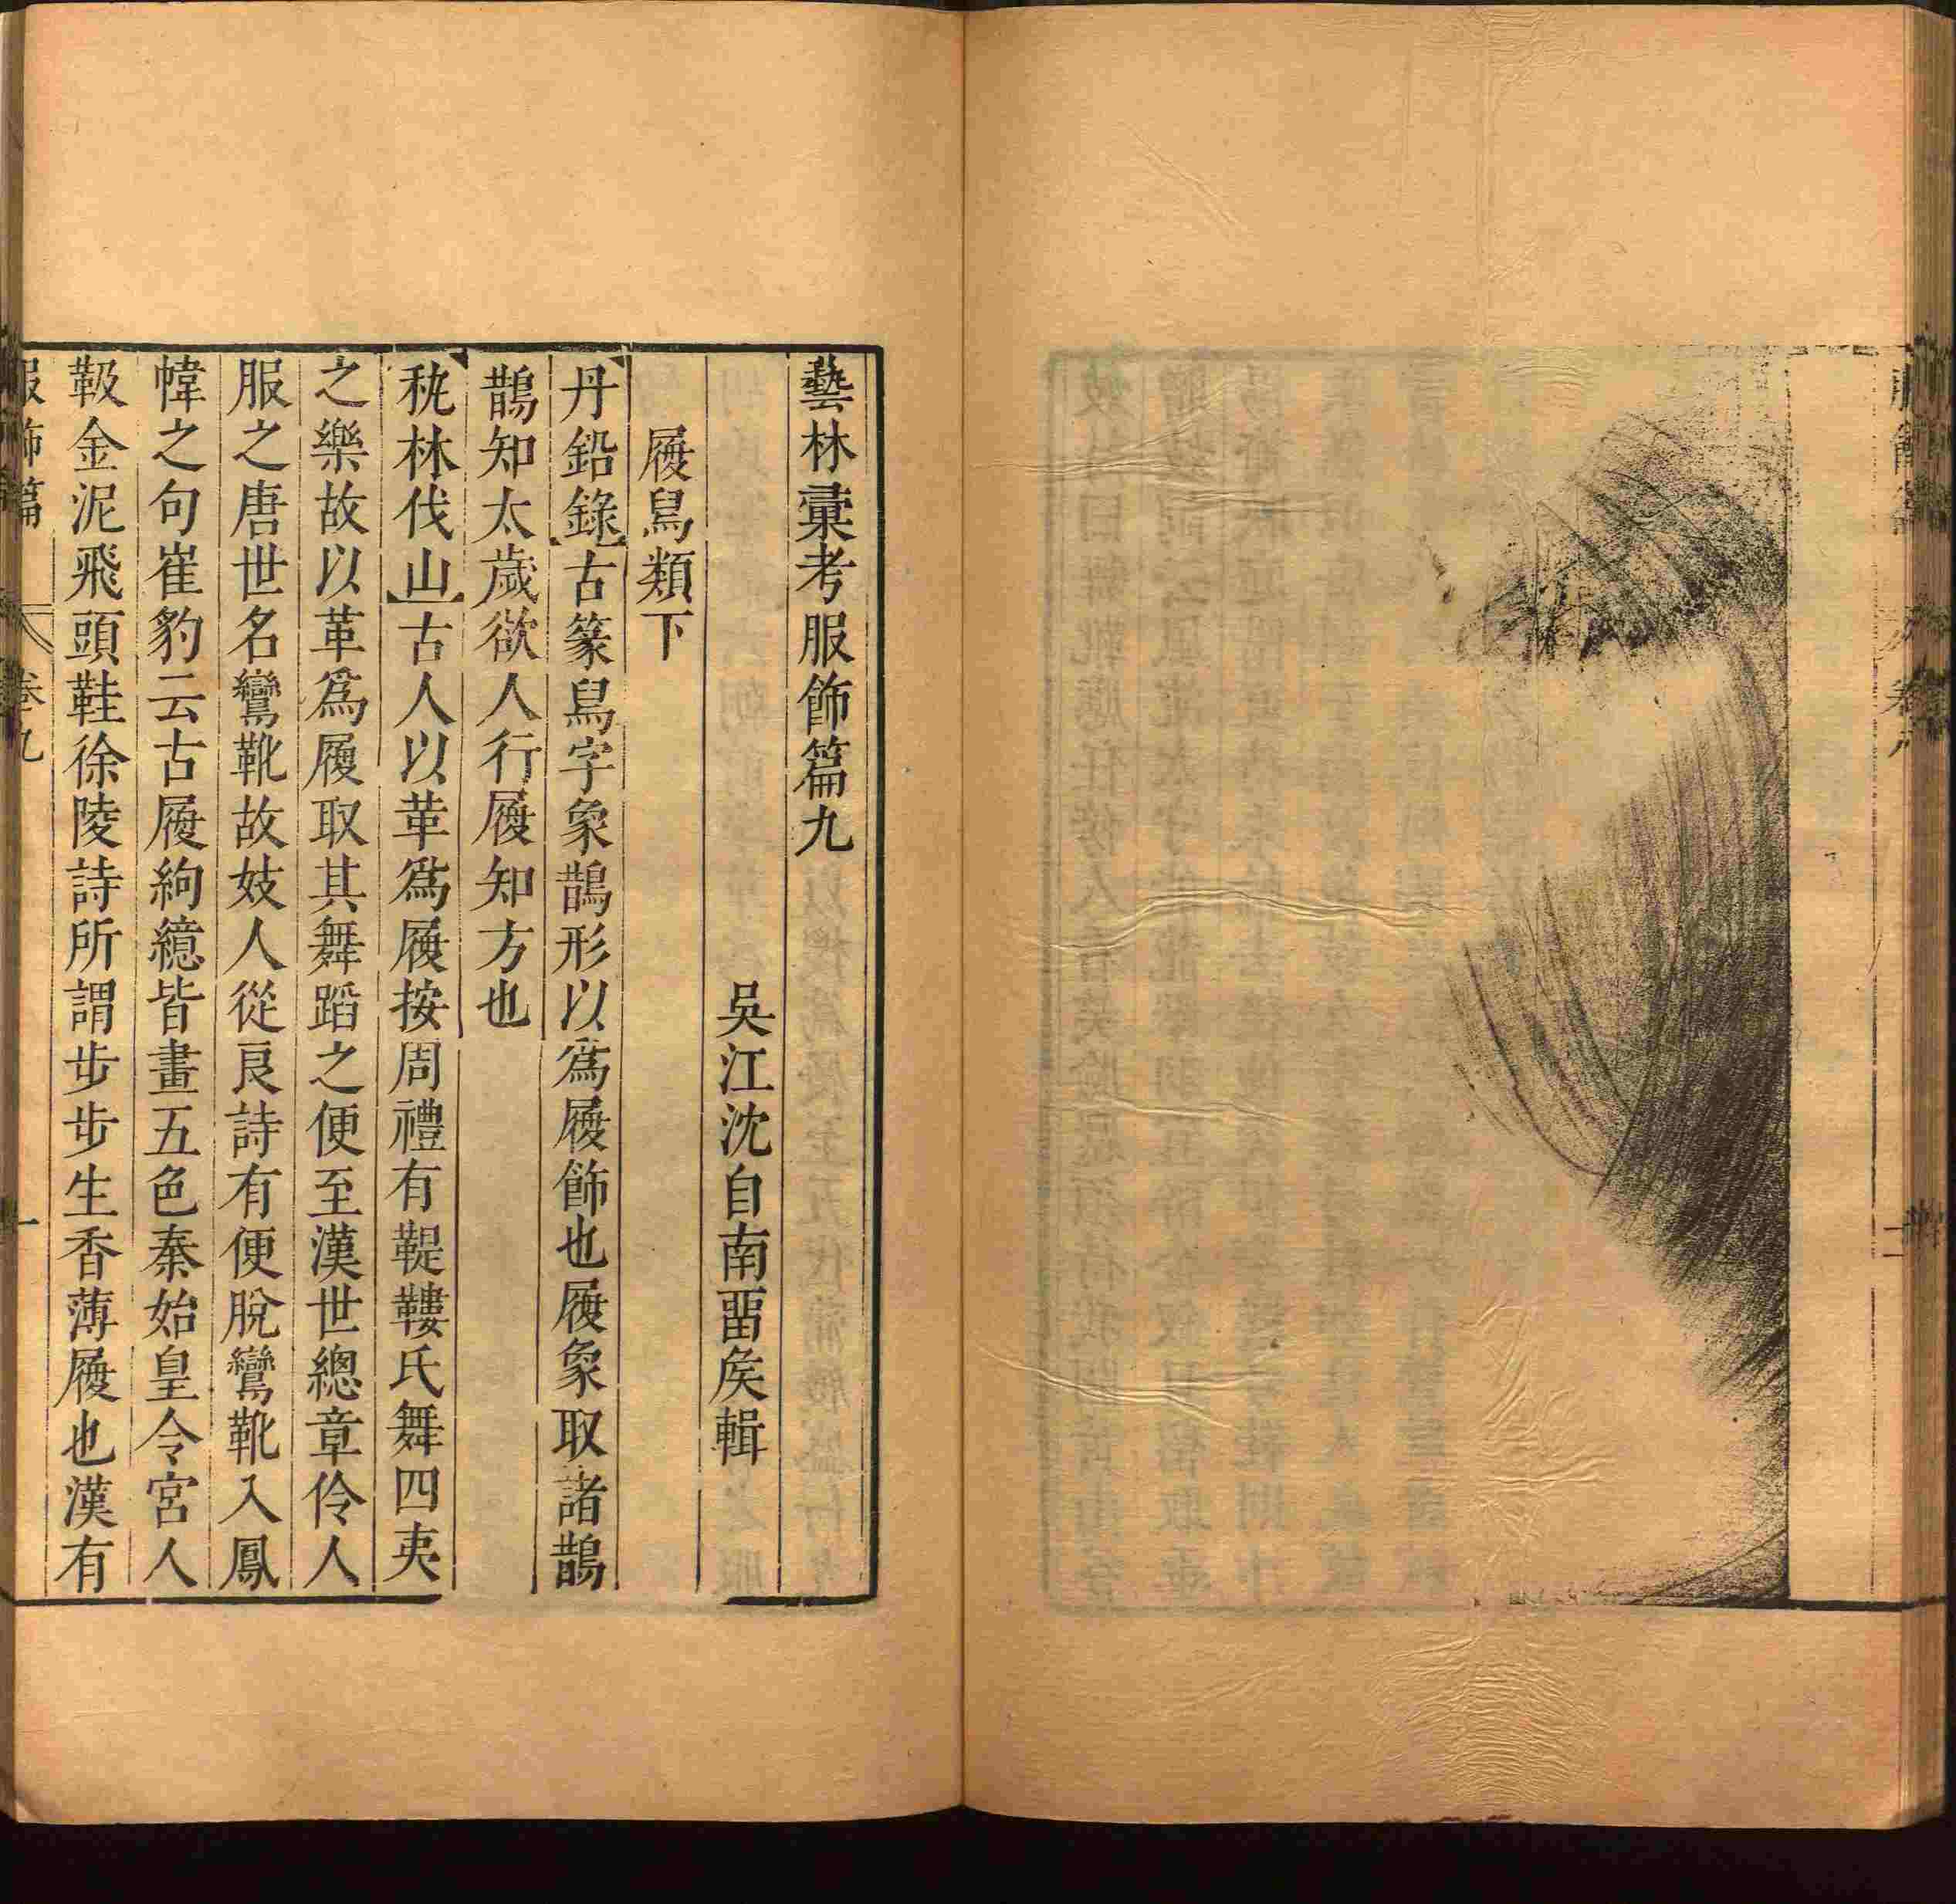 藝林彙考服飾篇九
吳江沈自南畱矦輯
履舄類下
丹鉛錄古篆舄字象鵲形以爲履飾也履象取諸鵲
鵲知太歲欲人行履知方也
秇林伐山古人以革爲履按周禮有鞮鞻氏舞四夷
之樂故以革爲履取其舞蹈之便至漢世總章伶人
服之唐世名鸞靴故妓人從良詩有便脫鸞靴入鳳
幃之句崔豹云古履絇繶皆畫五色秦始皇令宮人
靸金泥飛頭鞋徐陵詩所謂步步生香薄履也漢有
服飾篇 卷九 一